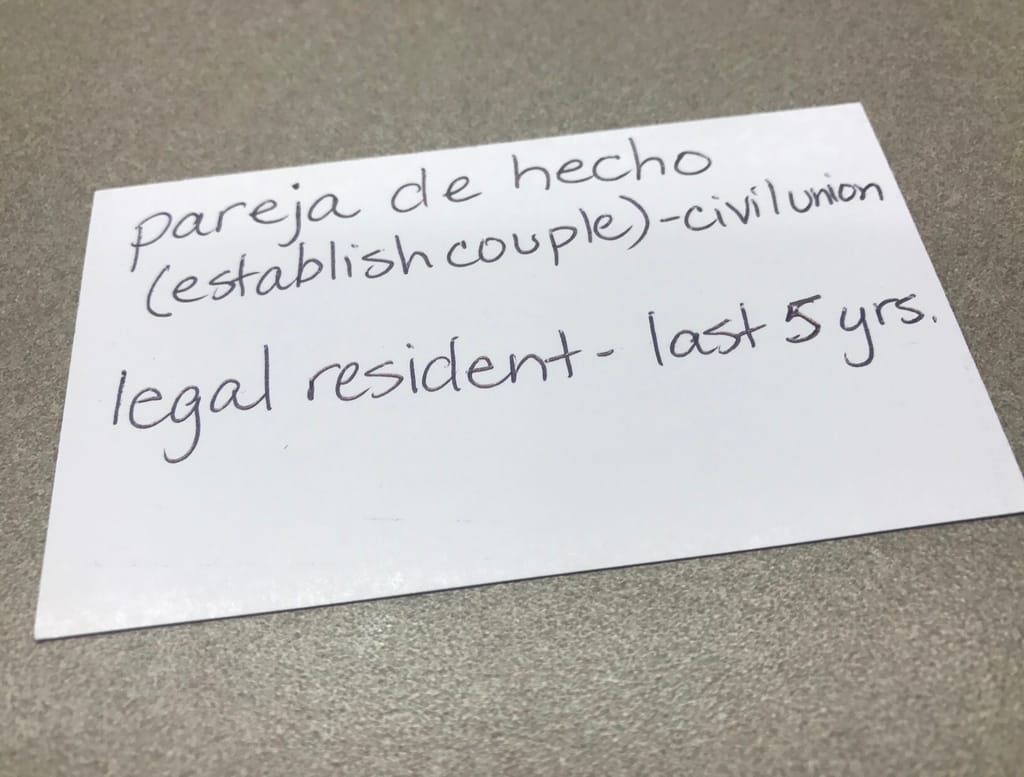 pareja de hecho
(establish couple)-civil union
legal resident - last 5 yrs.